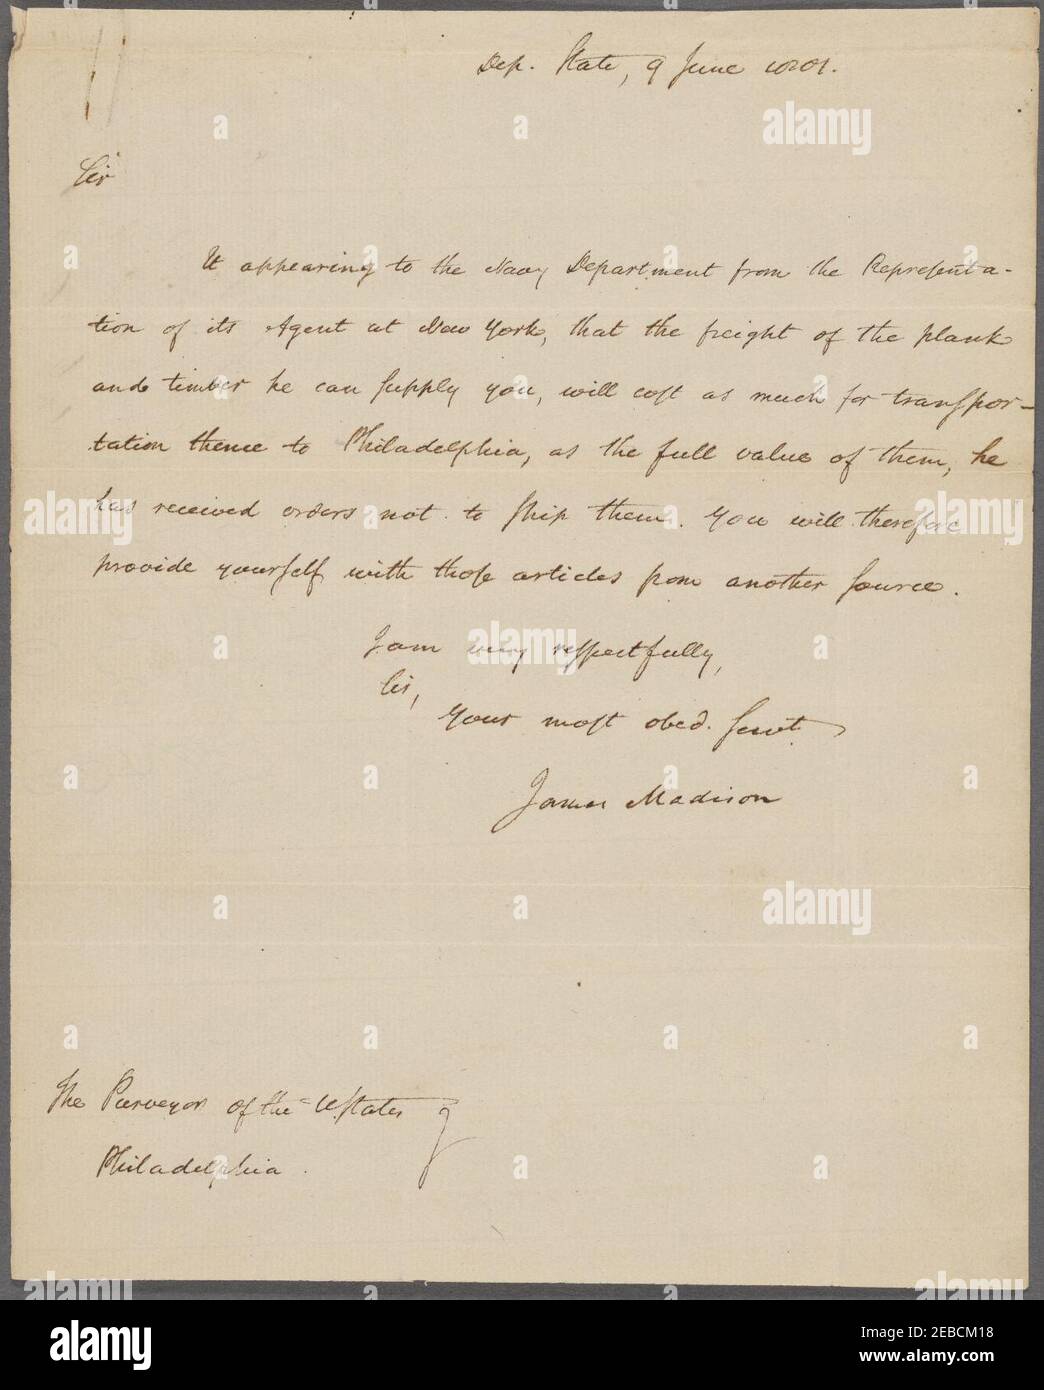 Dep. State, 9 June 1801.
Sir
It appearing to the Navy Department from the Representa-
tion of its Agent at New York, that the freight of the plank
and timber he can supply you, will cost as much for transpor-
tation thence to Philadelphia, as the full value of them, he
has received orders not to ship them. You will therefore
provide yourself with those articles from another source.
I am very respectfully,
Sir,
Your most obed. Servt.
James Madison
The Purveyor of the UStates
Philadelphia.
alamy
Image ID: 2EBCM18
www.alamy.com